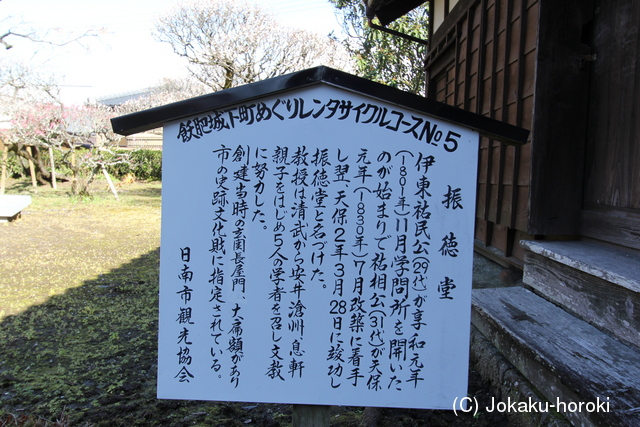 飫肥城下町めぐりレンタサイクルコースNo5
振徳堂
伊東祐民公(29代)が享和元年
(1801年)11月学問所を開いた
のが始まりで祐相公(31代)が天保
元年(1830年)7月改築に着手
し翌、天保2年3月28日に竣功し
振徳堂と名づけた。
教授は清武から安井滄洲、息軒
親子をはじめ5人の学者を召し文教
に努力した。
創建当時の表門長屋門、大廣額があり
市の史跡文化財に指定されている。
日南市観光協会
(C) Jokaku-horoki